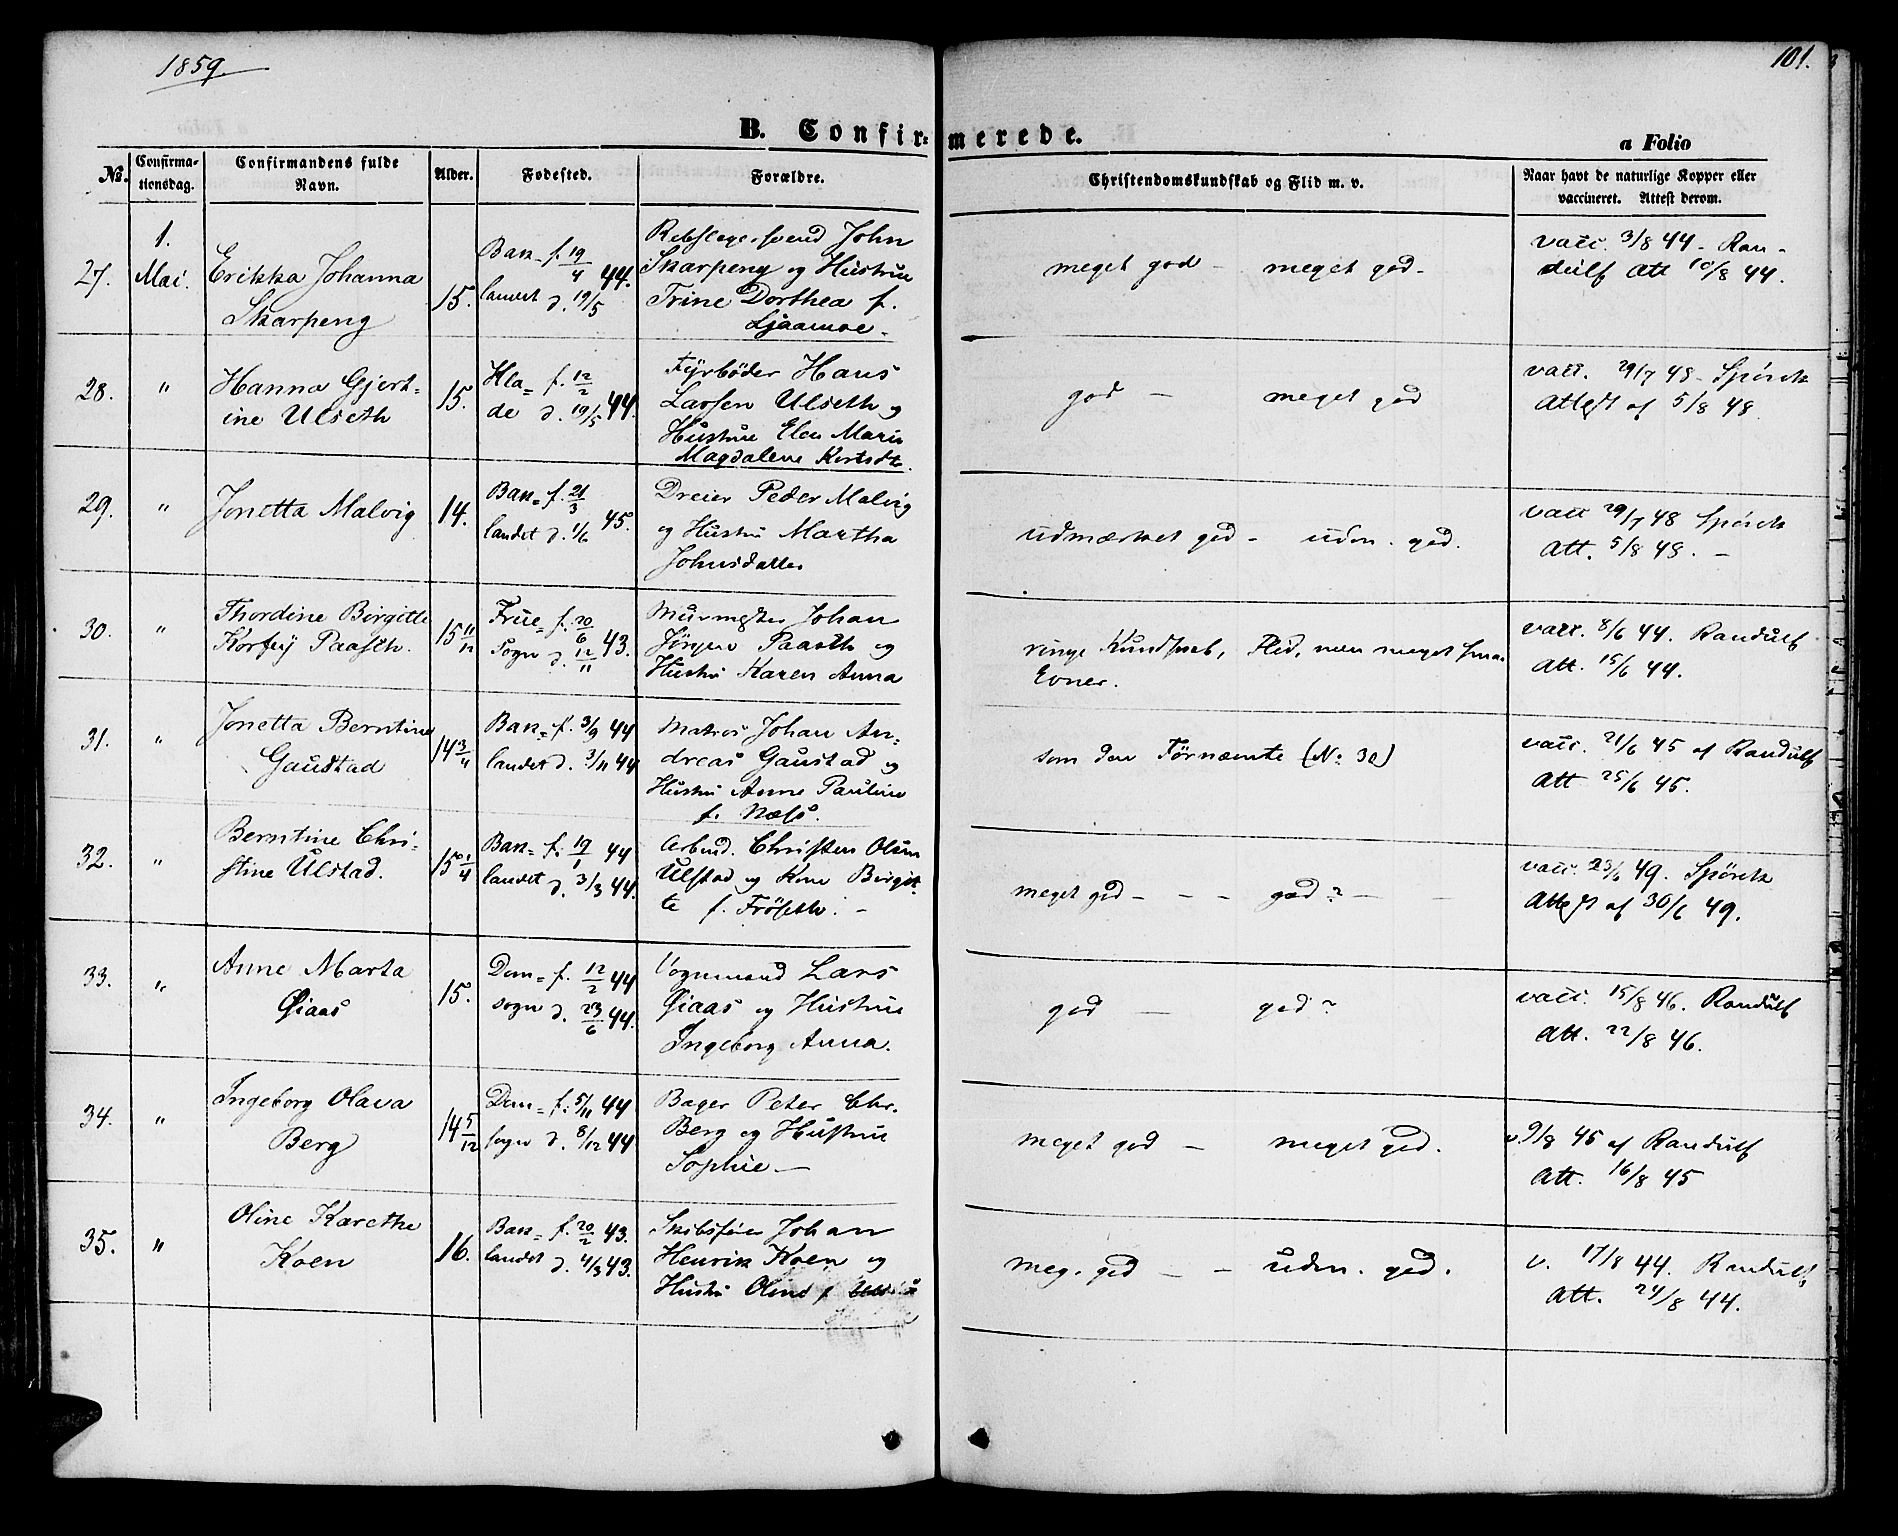 1859.
101.
B. Confir-
merede.
a Folio
No.
Confirma-
tionsdag.
Confirmandens fulde
Navn.
Alder.
Fødested.
Forældre.
Christendomskundskab og Flid m. v.
Naar havt de naturlige Kopper eller
vaccineret. Attest derom.
27.
1.
Mai.
Erikka Johanna
Skarpeng
15.
Bak- f. 19/4 44.
landet d. 19/5
Rebslagersvend John
Skarpeng og Hustrue
Trine Dorthea f.
Ljaamoe.
meget god - meget god-
vacc. 3/8 44 - Ran-
dulf Att 10/8 44.
28.
"
Hanna Gjert-
ine Ulseth
15.
Hla- f. 12/2 44.
de d. 19/5
Fyrbøder Hans
Larsen Ulseth og
Hustrue Elen Marie
Magdalene
god - meget god
vacc. 29/7 48 - Spörck
Attest af 5/8 48.
29.
"
Jonetta Malvig
14.
Bak- f. 21/3 45.
landet d. 1/6
Dreier Peder Malvig
og Hustru Martha
Johnsdatter
udmærket god - udm. god.
vacc 29/7 48 Spörck
Att. 5/8 48. -
30.
"
Thordine Birgitte
Paasth.
15 11/12
Frue- f. 20/6 43.
Sogn d. 12/11
Murmester Johan
Jørgen Paasth og
Hustru Karen Anna
ringe Kundskab, Flid, men meget smaa
Evner.
vacc. 8/6 44. Randulf
Att. 15/6 44.
31.
"
Jonetta Berntine
Gaustad
Bak- f. 3/9 44
landet d. 3/11 44
Matros Johan An-
dreas Gaustad og
Hustru Anne Pauline
f. Næss.
som den Førnævnte (No 30)
vacc. 21/6 45 af Randulf
Att 25/6 45.
32.
"
Berntine Chri-
stine Ulstad.
15 1/4
Bak- f. 19/1 44
landet d. 3/3 44.
Arbmd. Christen Olsen
Ulstad og Kone Birgit-
te f. Fröseth. -
meget god - - - god? -
vacc. 23/6 49. Spörck
Attest af 30/6 49.
33.
"
Anne Marta
Øiaas
15.
Dom- f. 12/2 44
sogn d. 23/6 44.
Vognmand Lars
Øiaas og Hustrue
Ingeborg Anna.
god - god?
vacc. 15/8 46. Randulf
Att. 22/8 46.
34.
"
Ingeborg Olava
Berg
14 5/12
Dom- f. 5/11 44
sogn d. 8/12 44
Bager Peter Chr.
Berg og Hustrue
Sophie -
meget god - meget god.
v. 9/8 45 af Randulf
Att. 16/8 45
35.
"
Oline Karethe
Koen
16.
Bak- f. 20/2 43.
landet d. 4/3 43.
Skibsfører Johan
Henrik Koen og
Hustru Oline f.
meg. god - - udm. god.
v. 17/8 44. Randulf
Att. 24/8 44.